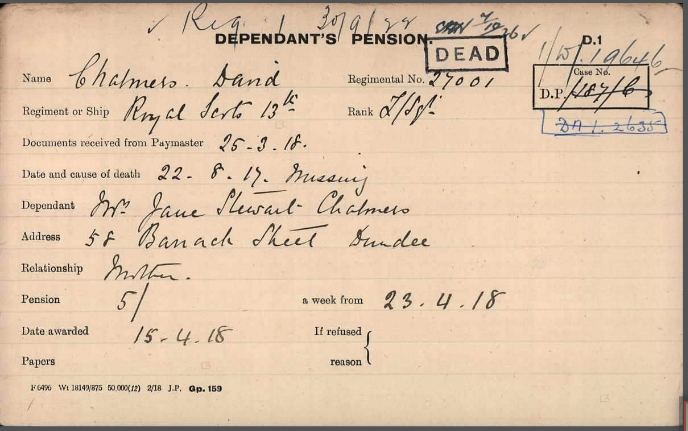 Reg 30/9/22
DEPENDANT'S PENSION. D.1
DEAD
1/W/.19646
Case No.
D.P./187/C
DA 1. 2635
Name Chalmers. David Regimental No. 27001
Regiment or Ship Royal Scots 13th Rank L/Sgt.
Documents received from Paymaster 25-3.18.
Date and cause of death 22-8-17. Missing
Dependant Mrs Jane Stewart Chalmers
Address 58 Barrack Street Dundee
Relationship Mother.
Pension 5/ a week from 23.4.18
Date awarded 15-4.18 If refused
Papers reason
F6496 Wt 18149/875 50,000(12) 2/18 J.P. Gp. 159